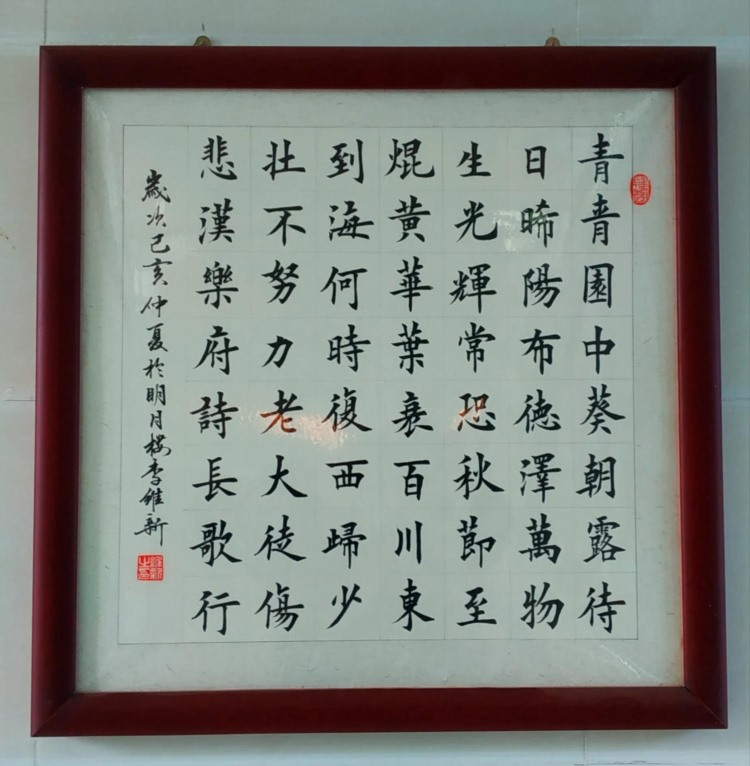 青青園中葵朝露待
日晞陽布德澤萬物
生光輝常恐秋節至
焜黃華葉衰百川東
到海何時復西歸少
壯不努力老大徒傷
悲漢樂府詩長歌行
歲次己亥仲夏於明月樓李維新